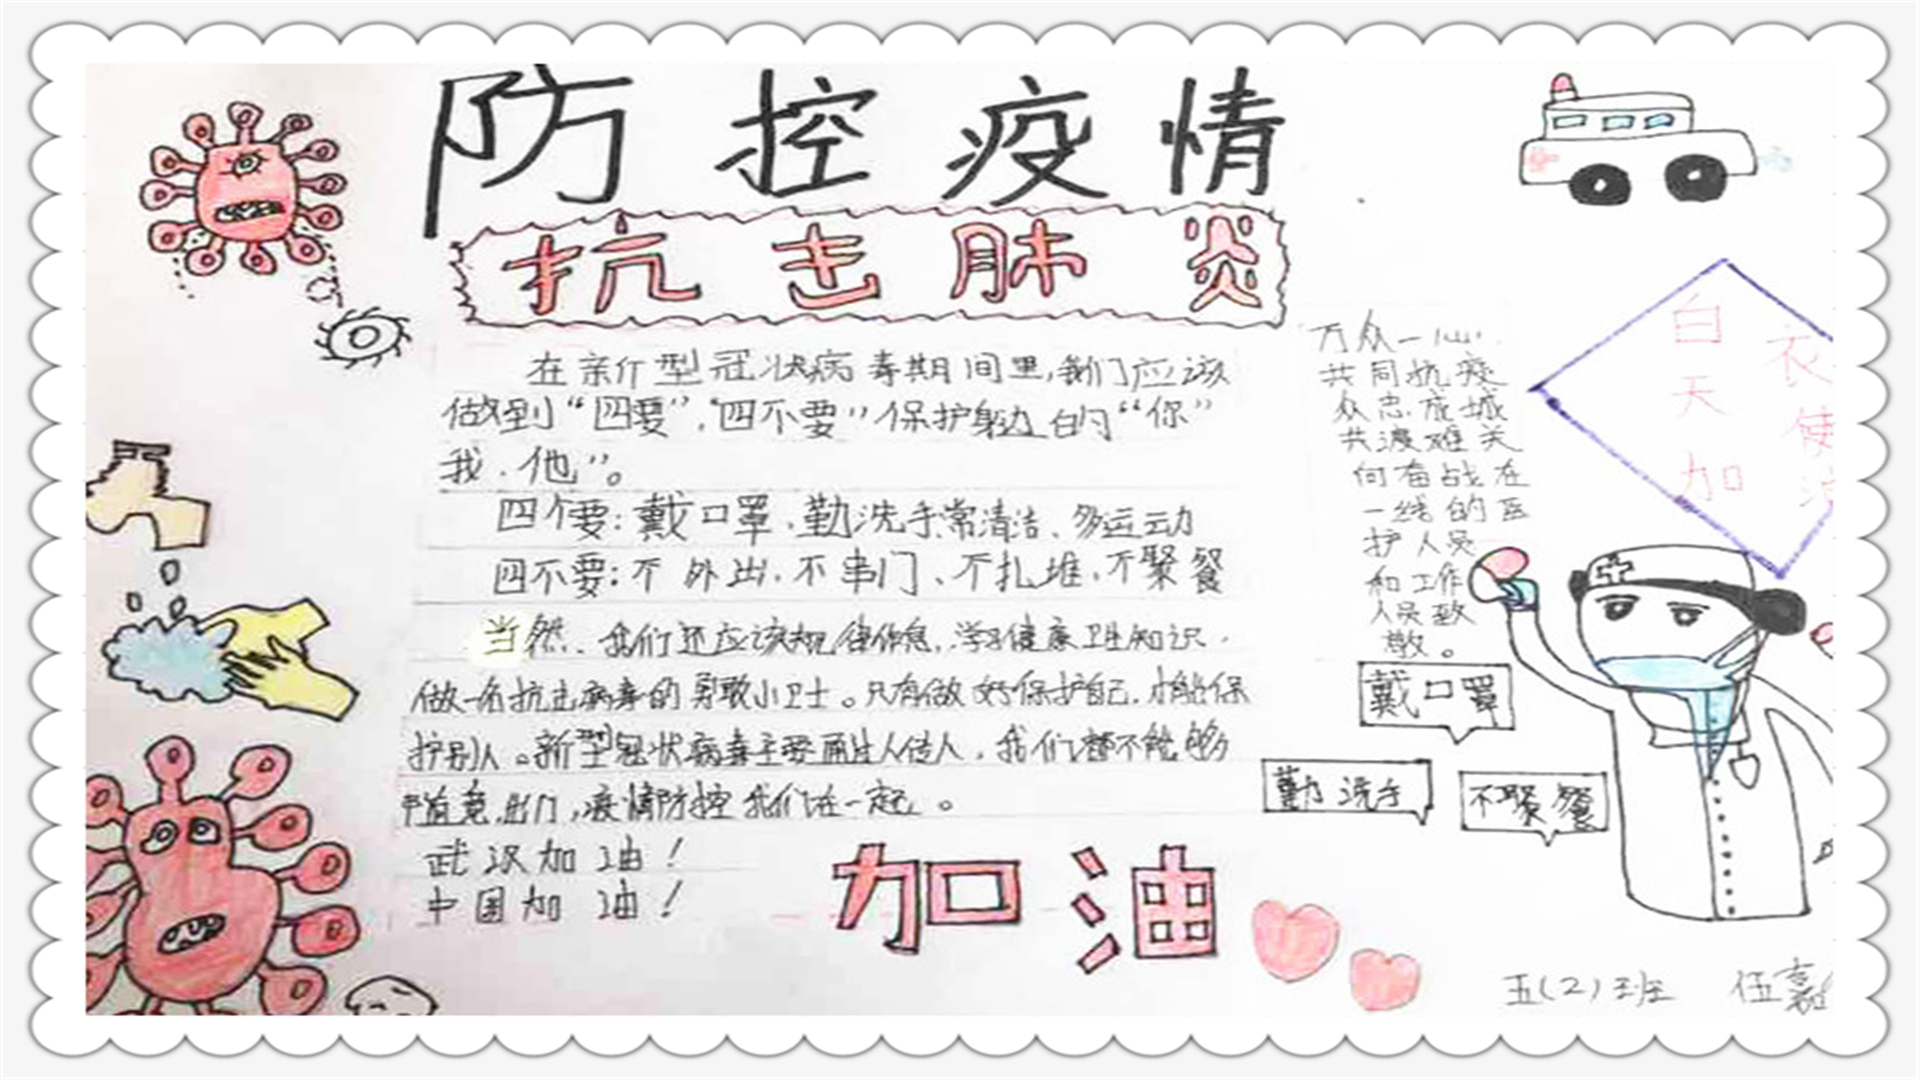 防控疫情
抗击肺炎
在新型冠状病毒期间里,我们应该
做到“四要”,“四不要”保护身边的“你”
我、他”。
四个要:戴口罩、勤洗手、常清洁、多运动
四不要:不外出、不串门、不扎堆、不聚餐
当然、我们还应该规律作息,学习健康卫生知识,
做一名抗击病毒的勇敢小卫士。只有做好保护自己,才能保
护别人。新型冠状病毒主要通过人传人,我们都不能够
随意出门,疫情防控我们在一起。
武汉加油!
中国加油!
加油
万众一心,
共同抗疫
众志成城
共渡难关
向奋战在
一线的医
护人员
和工作
人员致
敬。
白衣
天使
加
戴口罩
勤洗手
不聚餐
五(2)班 伍嘉